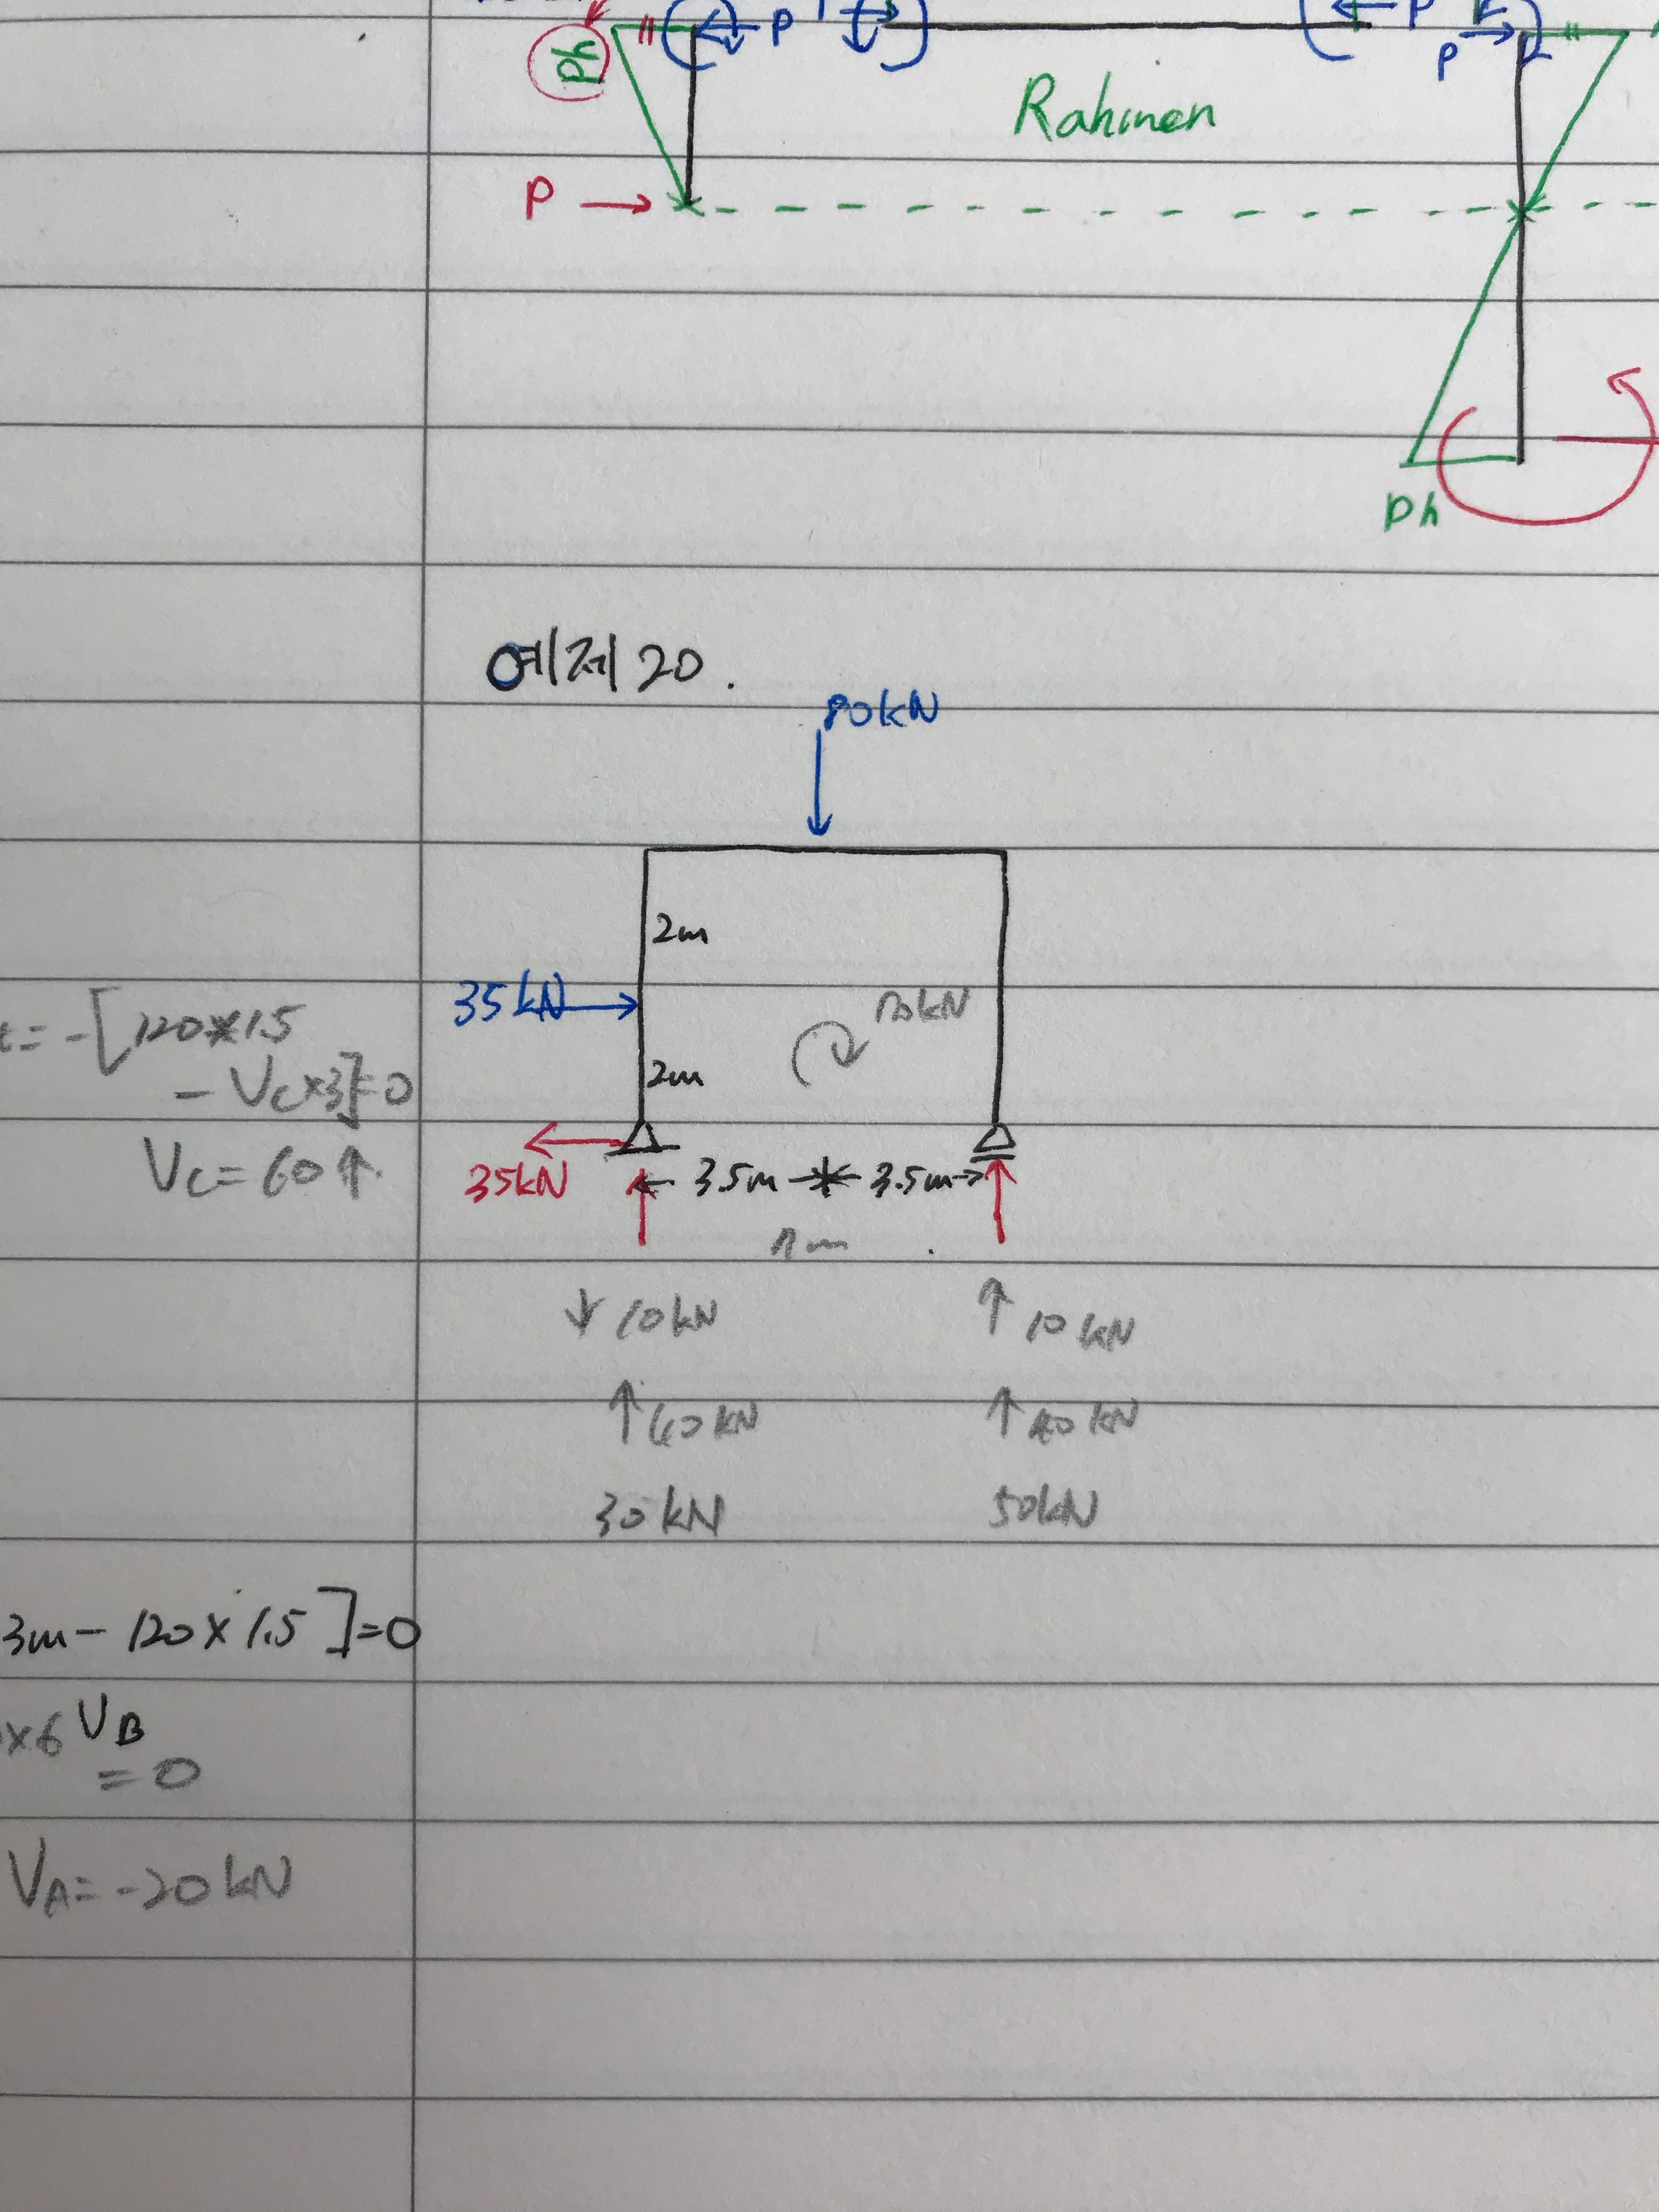 Ph
P
P
P
Rahmen
P
Ph
예제 20.
80kN
2m
35kN
2m
= -[120×1.5
- Vc×3]=0
Vc = 60↑
35kN
3.5m
3.5m
7m
↓ 10kN
↑ 10kN
↑ 40kN
↑ 40kN
30kN
50kN
3m - 120×1.5]=0
×6 VB
= 0
VA = -20kN